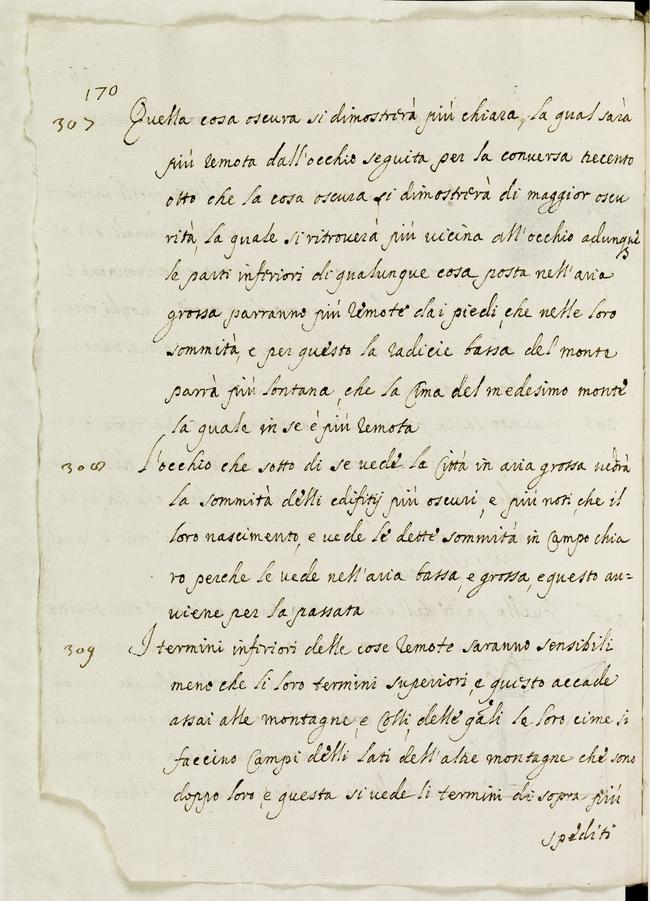 170
307 Quella cosa oscura si dimostrerà più chiara, la qual sarà
più remota dall'occhio seguita per la conversa trecento
otto che la cosa oscura si dimostrerà di maggior oscu
rità, la quale si ritrouerà più uicina all'occhio adunque
le parti inferiori di qualunque cosa posta nell'aria
grossa parranno più remote dai piedi, che nelle loro
sommità, e per questo la radicie bassa del monte
parrà più lontana, che la Cima del medesimo monte
la quale in se è più remota
308 L'occhio che sotto di se uede la Città in aria grossa uedrà
la sommità delli edifitij più oscuri, e più noti che il
loro nascimento, e uede le dette sommità in Campo chia
ro perche le uede nell'aria bassa, e grossa, e questo au=
uiene per la passata
309 I termini inferiori delle cose remote saranno sensibili
meno che li loro termini superiori, e questo accade
assai alle montagne, e Colli, delle quali le loro cime si
faccino Campi delli lati dell'altre montagne che sono
doppo loro, e questa si uede li termini di sopra più
spediti